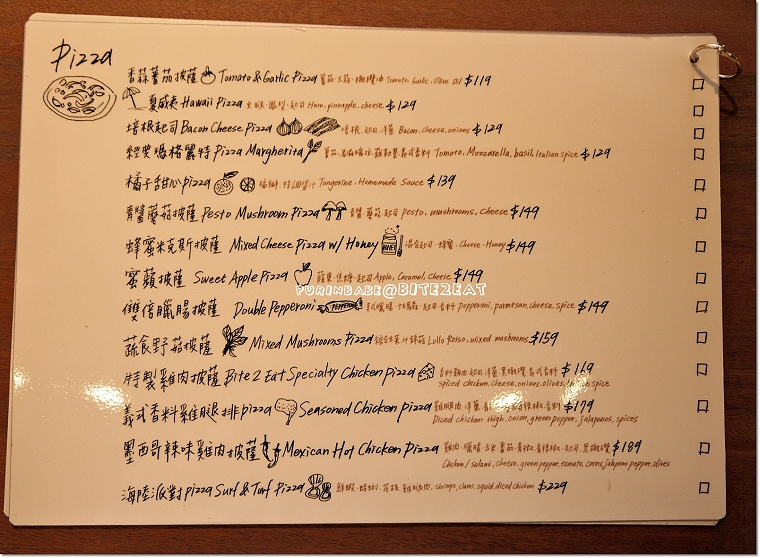 Pizza
香蒜蕃茄披薩 Tomato & Garlic Pizza 蕃茄.大蒜.橄欖油 Tomato, Garlic, Olive Oil $119
夏威夷 Hawaii Pizza 火腿.鳳梨.起司 Ham, pineapple, cheese $129
培根起司 Bacon Cheese Pizza 培根.起司.洋蔥 Bacon, cheese, onions $129
經典瑪格麗特 Pizza Margherita Tomato, Mozzarella, basil, Italian spice $129
橘子甜心pizza 橘瓣 特調醬汁 Tangerine, Homemade Sauce $139
青醬蘑菇披薩 Pesto Mushroom Pizza 青醬.蘑菇.起司 pesto, mushrooms, cheese $149
蜂蜜米克斯披薩 Mixed Cheese Pizza w/ Honey 混合起司.蜂蜜.Cheese.Honey $149
蜜蘋披薩 Sweet Apple Pizza 蘋果.焦糖.起司 Apple, Caramel, cheese $149
PURINBABE@BITE2EAT
雙倍臘腸披薩 Double Pepperoni PEPPERONI Pepperoni, parmesan, cheese, spice $149
蔬食野菇披薩 Mixed Mushrooms Pizza Lollo Rosso, mixed mushrooms $159
特製雞肉披薩 Bite 2 Eat Specialty Chicken pizza 香料雞肉.起司.洋蔥.黑橄欖.義式香料 $169
spiced chicken, cheese, onions, olives, spice
義式香料雞腿排pizza Seasoned Chicken pizza $179
Diced chicken thigh, onion, green pepper, jalapenos, spices
墨西哥辣味雞肉披薩 Mexican Hot Chicken Pizza 雞肉.臘腸.玉米.蕃茄.青椒.青辣椒.起司.黑橄欖 $189
Chicken / salami, cheese, green pepper, tomato, corns, jalapeno pepper, olives
海陸派對pizza Surf & Turf Pizza shrimps, clams, squid, diced chicken $229